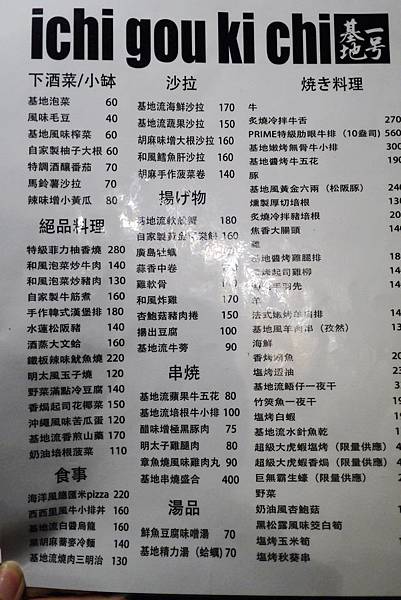 ichi gou ki chi
一号
基地
下酒菜/小缽
基地泡菜 60
風味毛豆 40
基地風味榨菜 60
自家製柚子大根 60
特調酒釀番茄 70
馬鈴薯沙拉 70
辣味噌小黃瓜 80
絕品料理
特級菲力柚香燒 280
和風泡菜炒牛肉 140
和風泡菜炒豬肉 130
自家製牛筋煮 160
手作韓式漢堡排 180
水蓮松阪豬 140
酒蒸大文蛤 160
鐵板辣味魷魚燒 220
明太風玉子燒 120
野菜滿點冷豆腐 140
香焗起司花椰菜 150
沖繩風味苦瓜蛋 120
基地流香煎山藥 170
奶油培根菠菜 110
食事
海洋風總匯米pizza 220
西西里風牛小排丼 160
基地流白醬烏龍 160
黑胡麻蕎麥冷麵 140
基地流燒肉三明治 130
沙拉
基地流海鮮沙拉 170
基地流蔬果沙拉 150
胡麻味噌大根沙拉 160
和風鱈魚肝沙拉 160
胡麻手作菠菜卷 140
揚げ物
基地流軟殼蟹 180
自家製黃金 130
廣島牡蠣
蒜香中卷
雞軟骨
和風炸雞
杏鮑菇豬肉捲 150
揚出豆腐 100
基地流牛蒡 90
串燒
基地流蘋果牛五花 80
基地流培根牛小排 100
醋味增極黑豚肉 75
明太子雞腿肉 80
章魚燒風味雞肉丸 90
基地串燒盛合 400
湯品
鮮魚豆腐味噌湯 70
基地精力湯（蛤蠣） 70
焼き料理
牛
炙燒冷拌牛舌 270
PRIME特級肋眼牛排（10盎司） 560
基地嫩烤無骨牛小排 300
基地醬烤牛五花 190
豚
基地風黃金六兩（松阪豚）
燻製厚切培根
炙燒冷拌豬培根
焦香大腸頭
雞
基地醬烤雞腿排
起司雞柳
手羽先
羊
法式嫩烤羊肩排
基地風羊肉串（孜然）
海鮮
香烤
塩烤透油
基地流鯣仔一夜干
竹筴魚一夜干
塩烤白蝦
基地流水針魚乾
超級大虎蝦塩烤（限量供應）
超級大虎蝦香焗（限量供應）
巨無霸生蠔（限量供應）
野菜
奶油風杏鮑菇
黑松露風味筊白筍
塩烤玉米筍
塩烤秋葵串